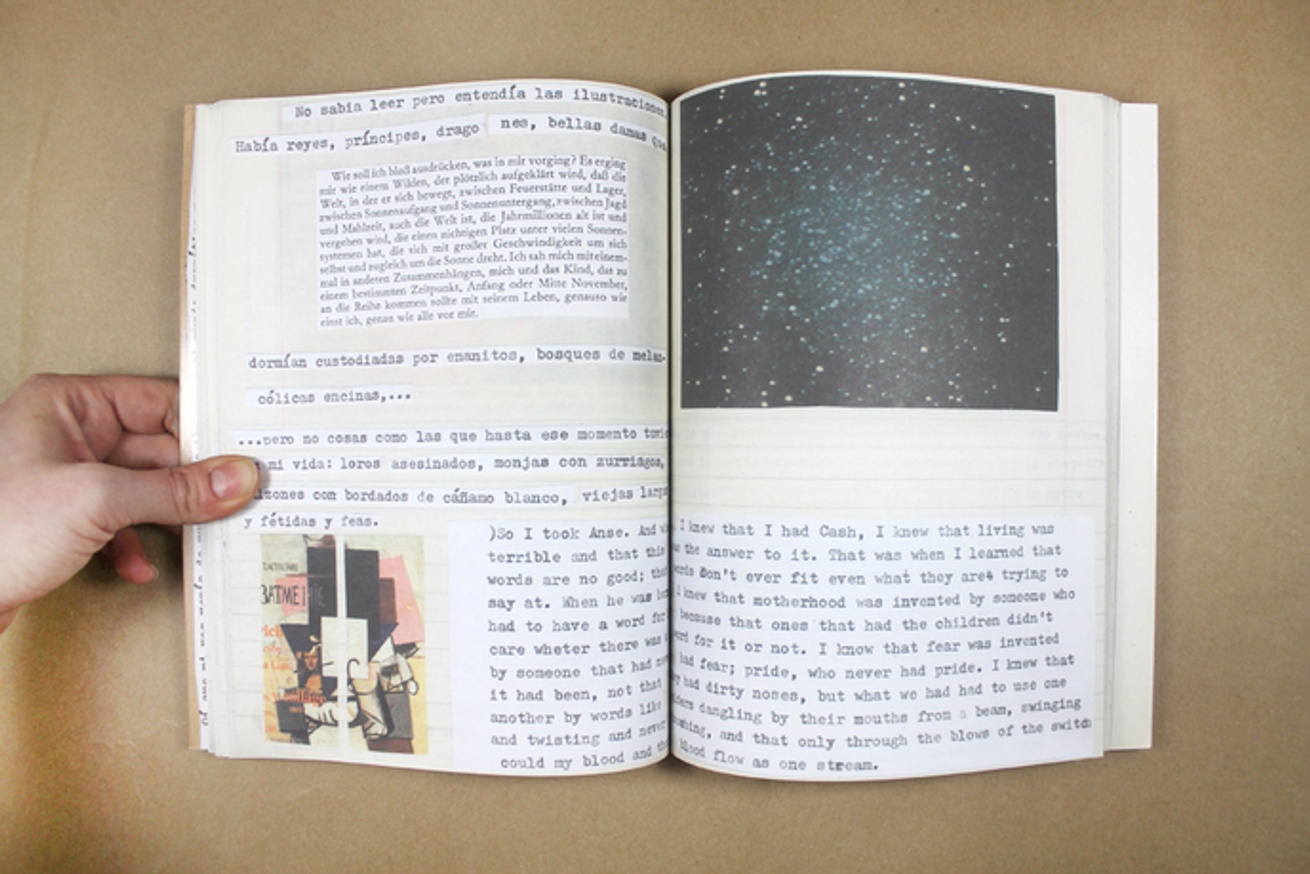 No sabía leer pero entendía las ilustraciones.
Había reyes, príncipes, drago nes, bellas damas que
Wie soll ich bloß ausdrücken, was in mir vorging? Es erging
mir wie einem Wilden, der plötzlich aufgeklärt wird, daß die
Welt, in der er sich bewegt, zwischen Feuerstätte und Lager,
zwischen Sonnenaufgang und Sonnenuntergang, zwischen Jagd
und Mahlzeit, auch die Welt ist, die Jahrmillionen alt ist und
vergehen wird, die einen nichtigen Platz unter vielen Sonnen-
systemen hat, die sich mit großer Geschwindigkeit um sich
selbst und zugleich um die Sonne dreht. Ich sah mich mit einem-
mal in anderen Zusammenhängen, mich und das Kind, das zu
einem bestimmten Zeitpunkt, Anfang oder Mitte November,
an die Reihe kommen sollte mit seinem Leben, genauso wie
einst ich, genau wie alle vor mir.
dormían custodiadas por enanitos, bosques de melan-
cólicas encinas,...
...pero no cosas como las que hasta ese momento
mi vida: loros asesinados, monjas con zurriagos,
con bordados de cáñamo blanco, viejas
y fétidas y feas.
)So I took Anse. And
terrible and that this
words are no good;
say at. When he was
had to have a word for
care wheter there was
by someone that had
it had been, not that
another by words like
and twisting and never
could my blood and
I knew that I had Cash, I knew that living was
the answer to it. That was when I learned that
don't ever fit even what they are trying to
I knew that motherhood was invented by someone who
because that ones that had the children didn't
for it or not. I know that fear was invented
had fear; pride, who never had pride. I knew that
had dirty noses, but what we had had to use one
dangling by their mouths from a beam, swinging
and that only through the blows of the switch
blood flow as one stream.